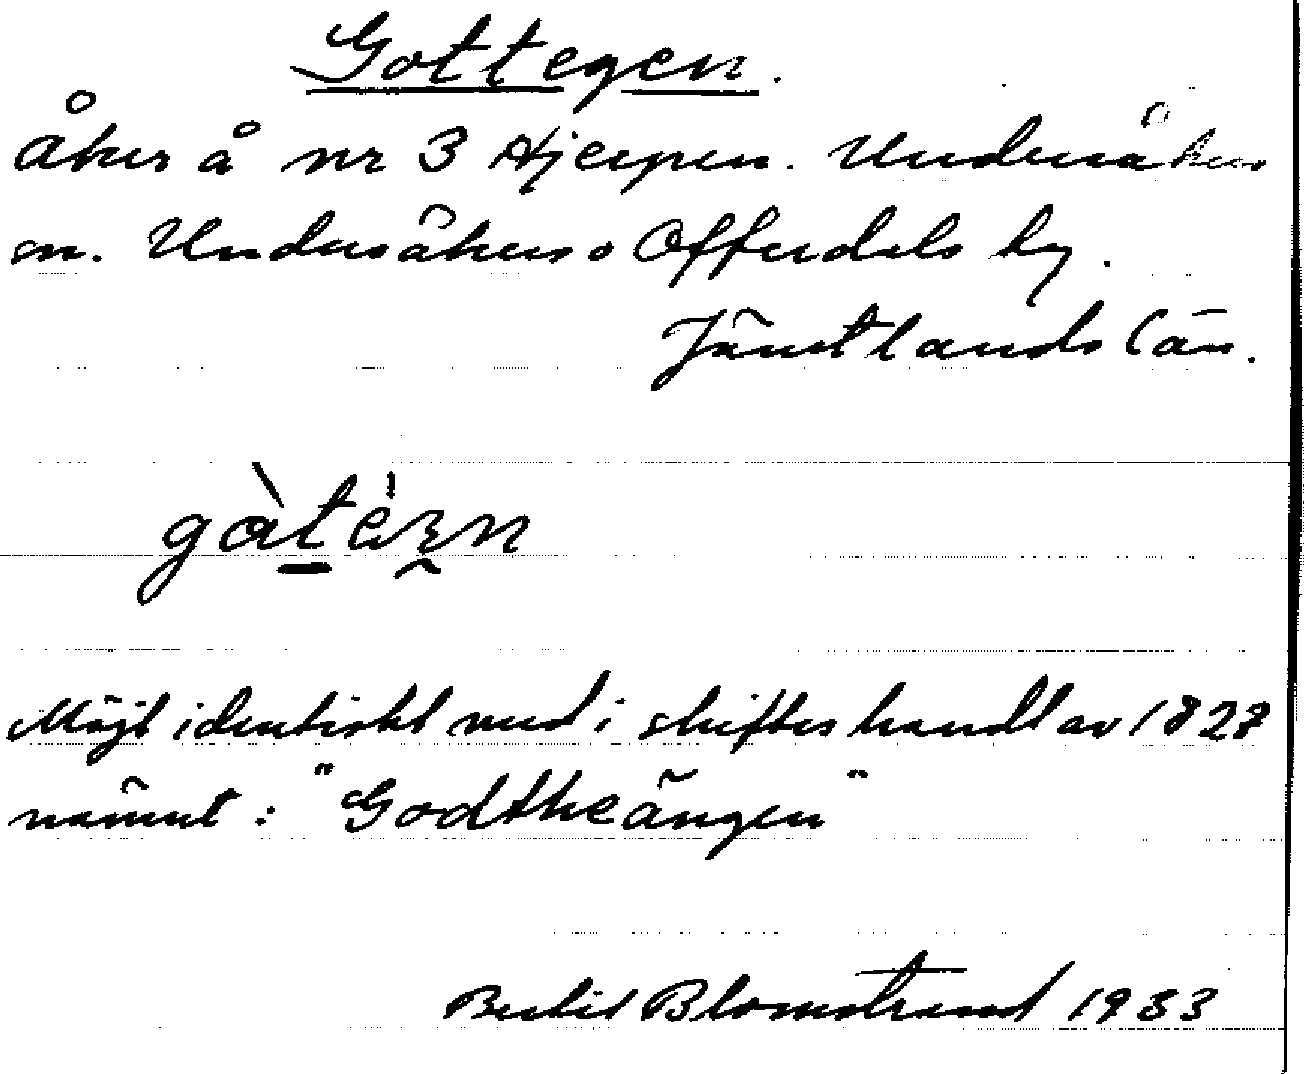 Gottegen.
åker å nr 3 Hjerpen. Undersåkers
sn. Undersåkers o Offerdals hg.
Jämtlands län.
gàtéʒn
Möjl identiskt med i skifteshandl av 1828
nämnt: "Godtheängen"
Bertil Blomstrand 1933